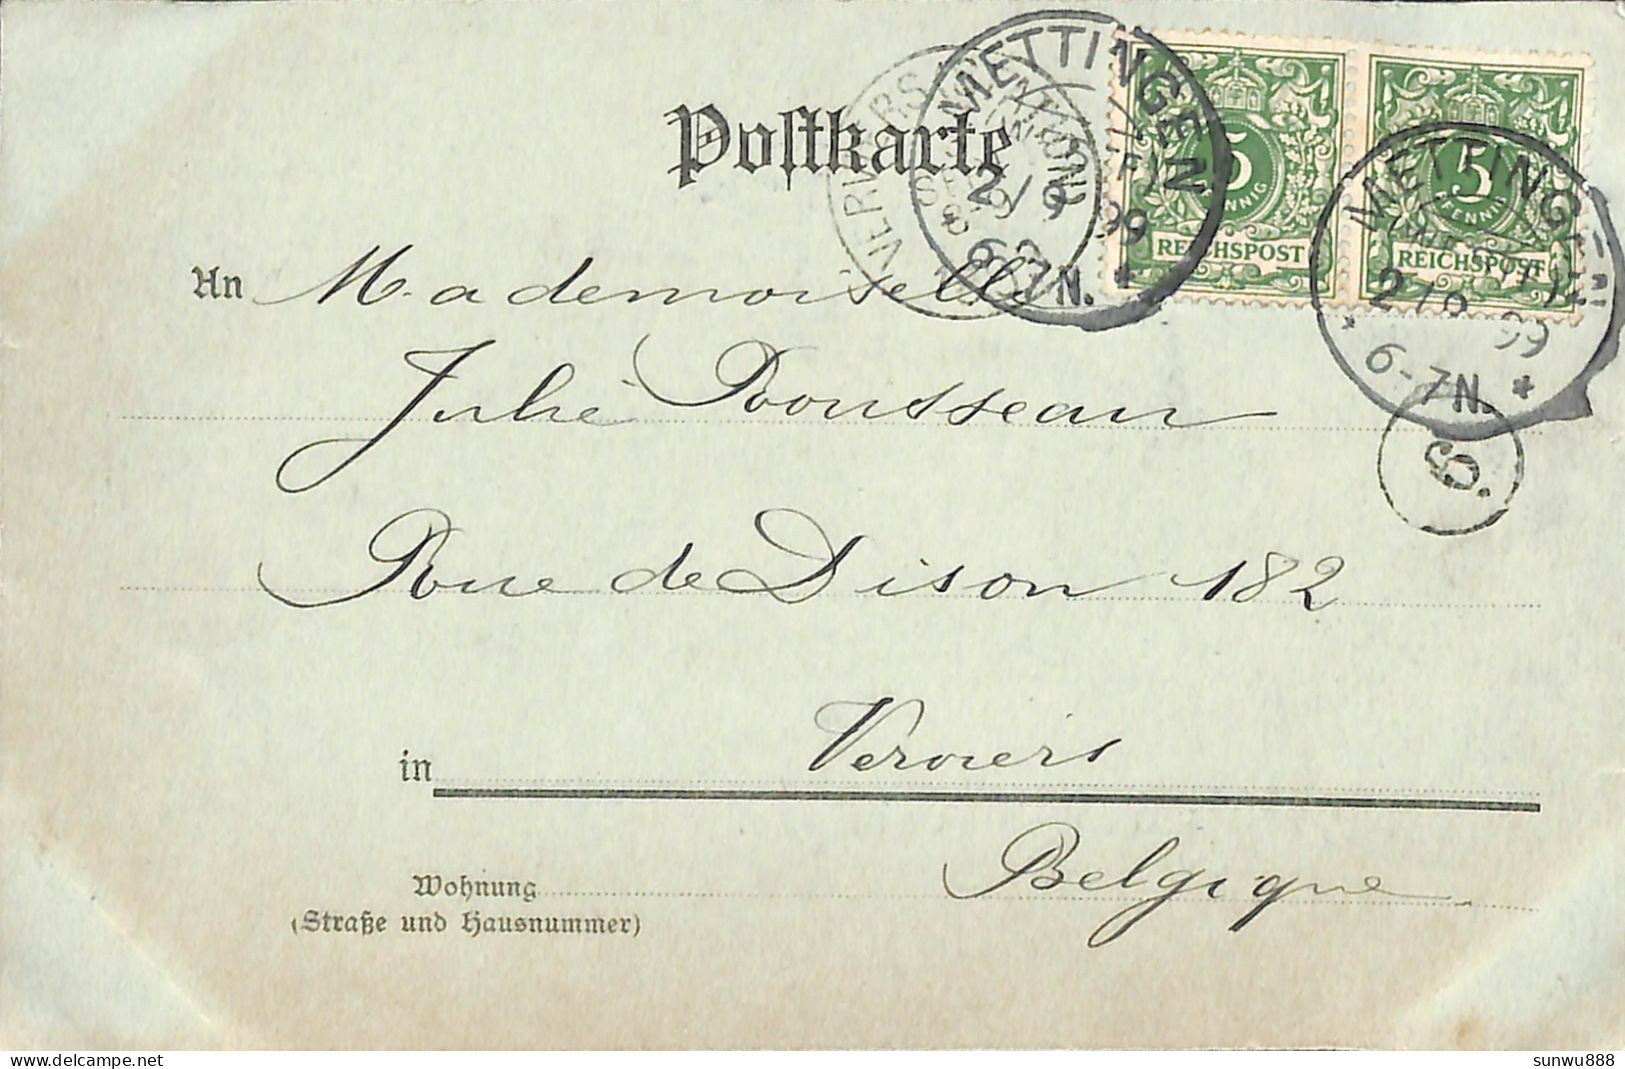 Postkarte
METTINGEN
(WESTF)
2/9 99
6-7N. *
VERVIERS
REICHSPOST
5
PFENNIG
REICHSPOST
5
PFENNIG
METTINGEN
(WESTF)
2/9 99
* 6-7N. *
6.
An Mademoiselle
Julie Rousseau
Rue de Dison 182
in Verviers
Belgique
Wohnung
(Straße und Hausnummer)
sunwu888